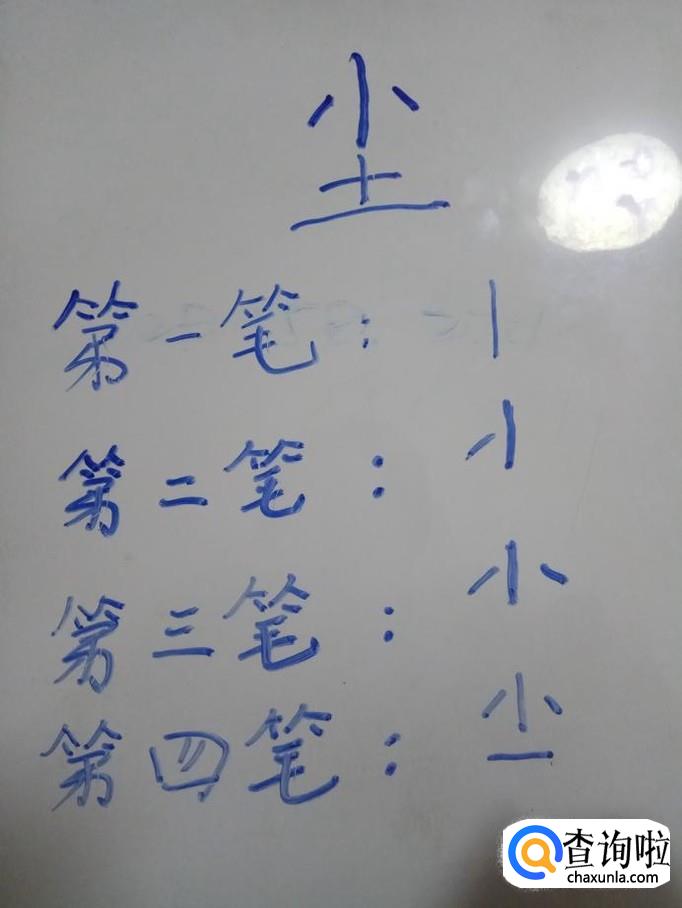 尘
第一笔：丨
第二笔：
第三笔：小
第四笔：
查询啦
chaxunla.com